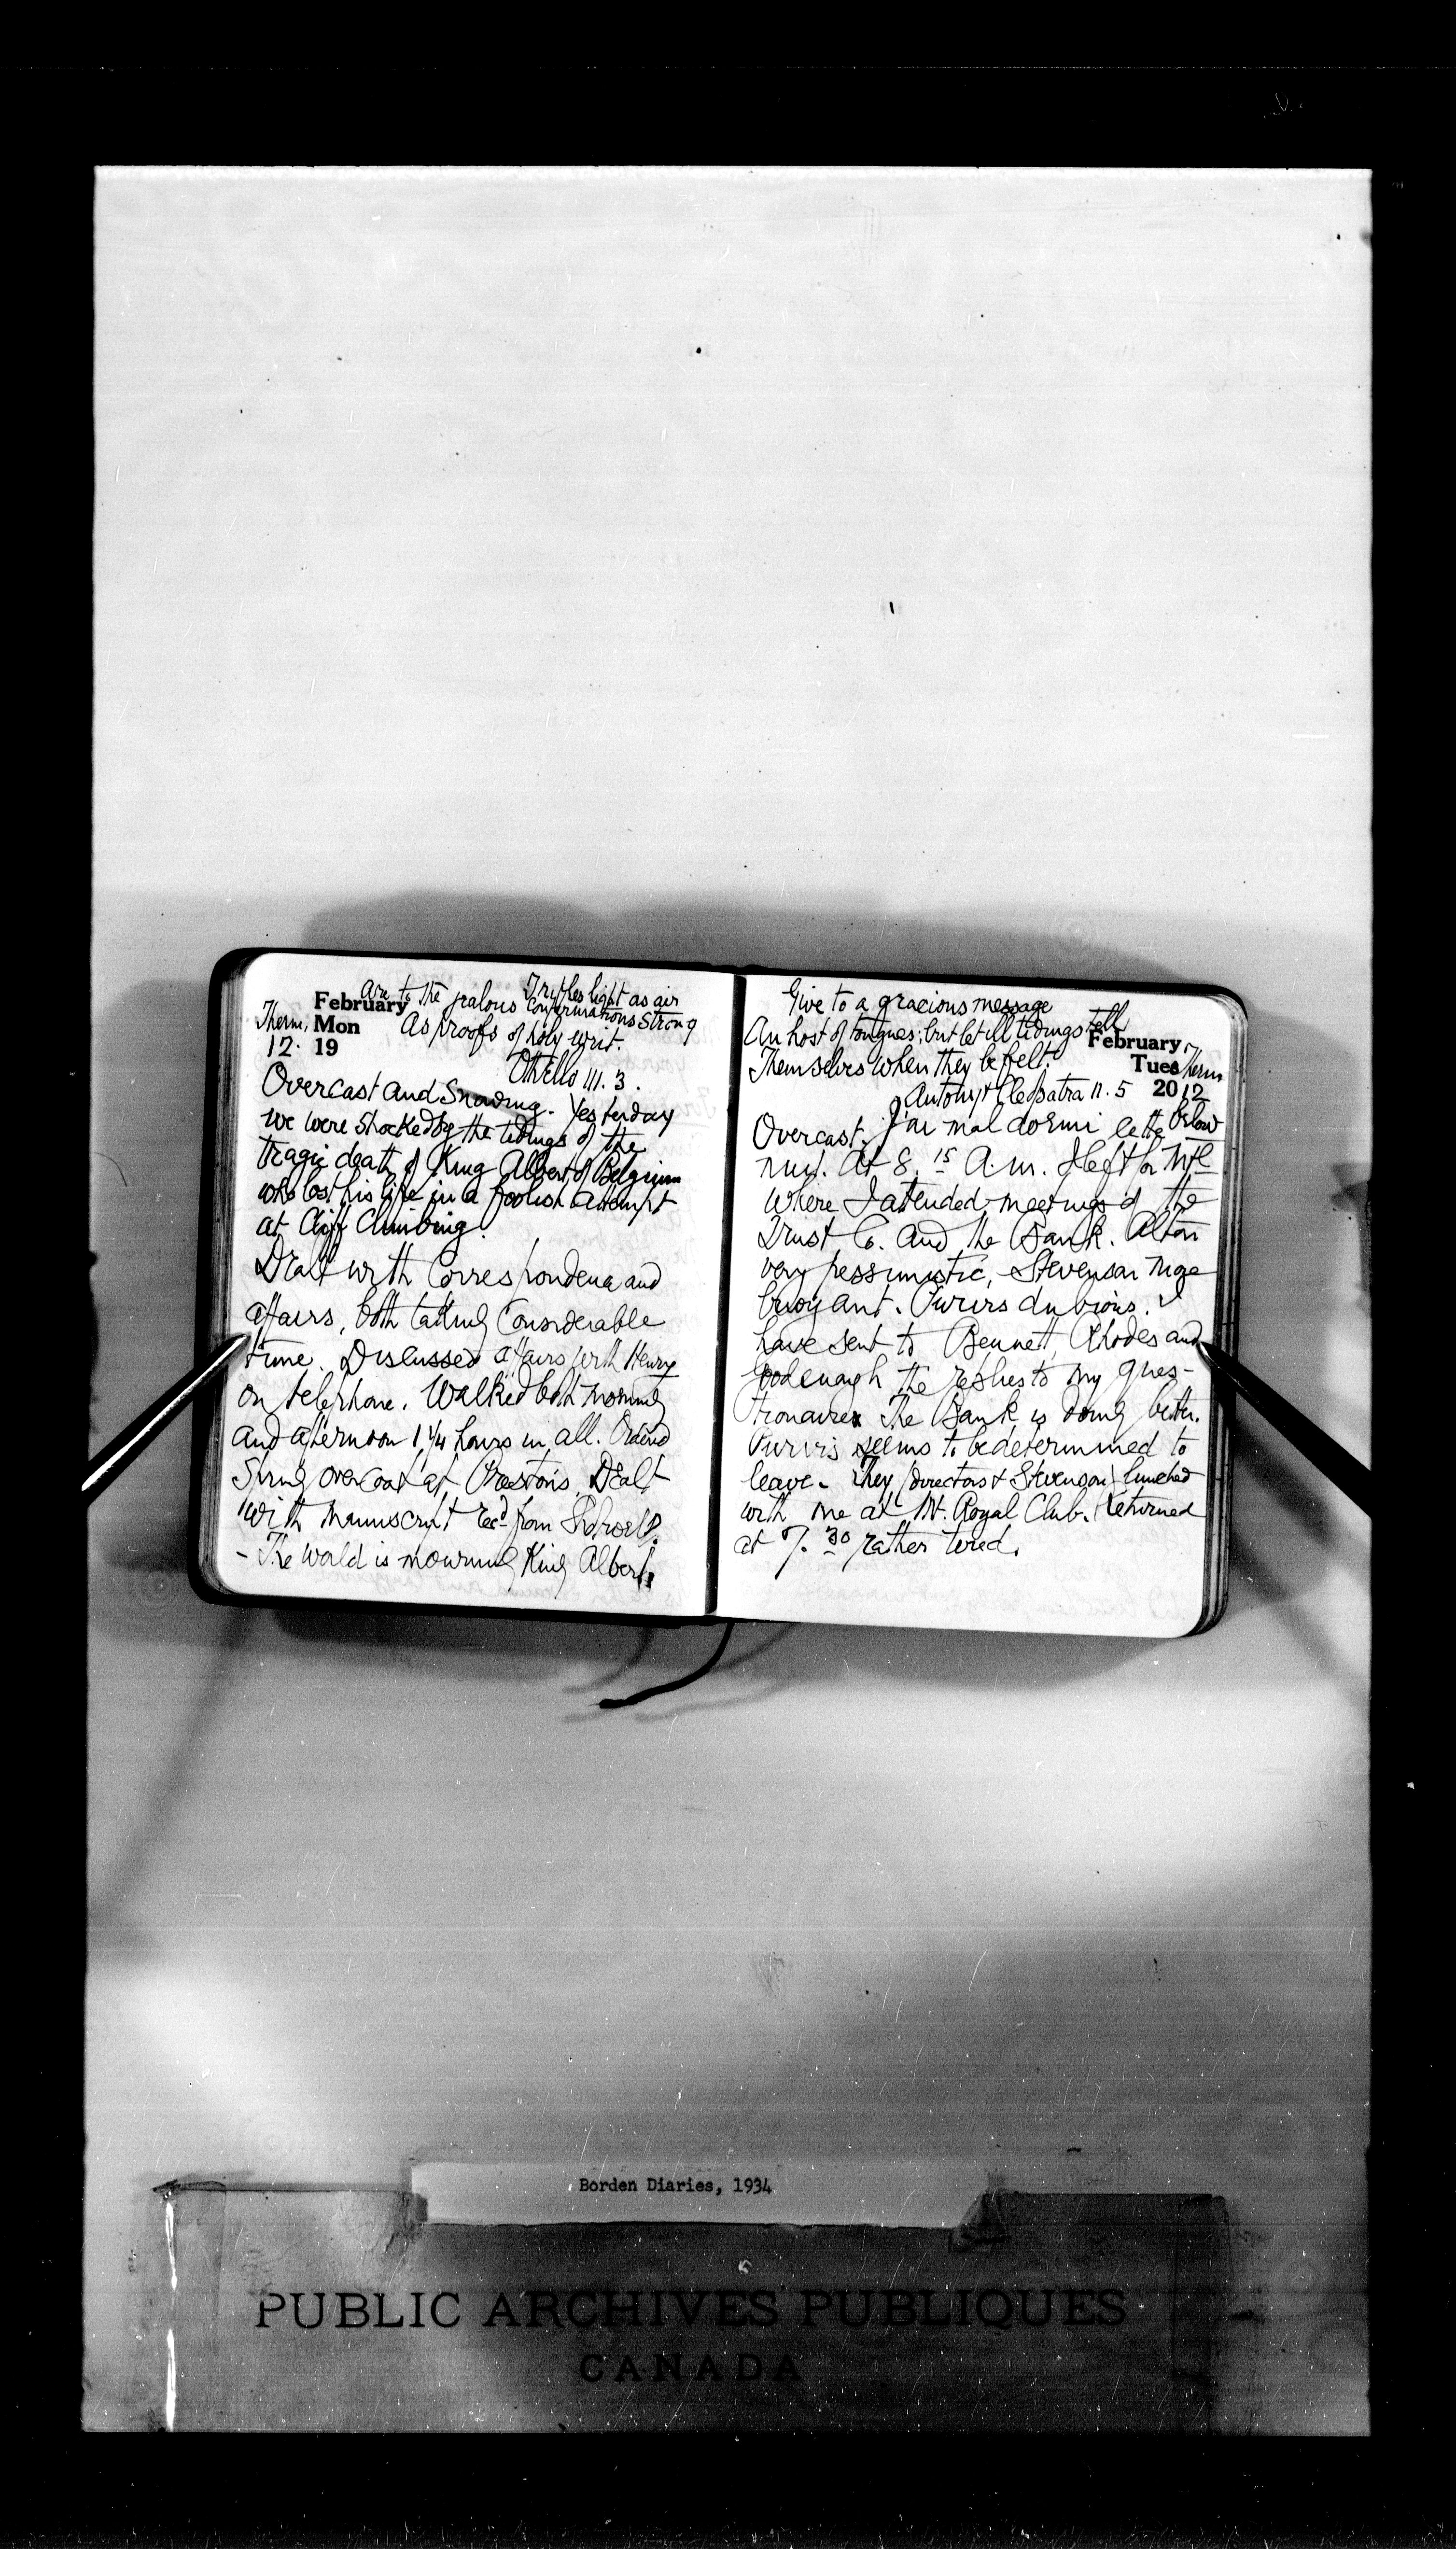 Trifles light as air
Are to the jealous confirmations strong
As proofs of holy writ.
Othello III. 3.
February
Mon
19
Therm.
12.
Overcast and Snowing. Yesterday
we were shocked by the tidings of the
tragic death of King Albert of Belgium
who lost his life in a foolish attempt
at Cliff Climbing.
Dealt with Correspondence and
affairs, both taking Considerable
time. Discussed affairs with Henry
on telephone. Walked both morning
and afternoon 1 1/4 hours in all. Ordered
Spring overcoat at Preston's. Dealt
with manuscript recd from
- The world is mourning King Albert.
Give to a gracious message
An host of tongues; but let ill tidings tell
Themselves when they be felt.
Antony & Cleopatra II. 5
February
Tues
20
Therm
12
below
Overcast. J'ai mal dormi cette
nuit. At 8.15 A.m. I left for Mtl
where I attended meetings of the
Trust Co. and the Bank. Alton
very pessimistic, Stevenson more
buoyant. Purvis dubious. I
have sent to Bennett, Rhodes and
Goodenough the replies to my ques-
tionaires The Bank is doing better.
Purvis seems to be determined to
leave. They (directors & Stevenson) lunched
with me at Mt. Royal Club. Returned
at 7.30 rather tired.
Borden Diaries, 1934
PUBLIC ARCHIVES PUBLIQUES
CANADA